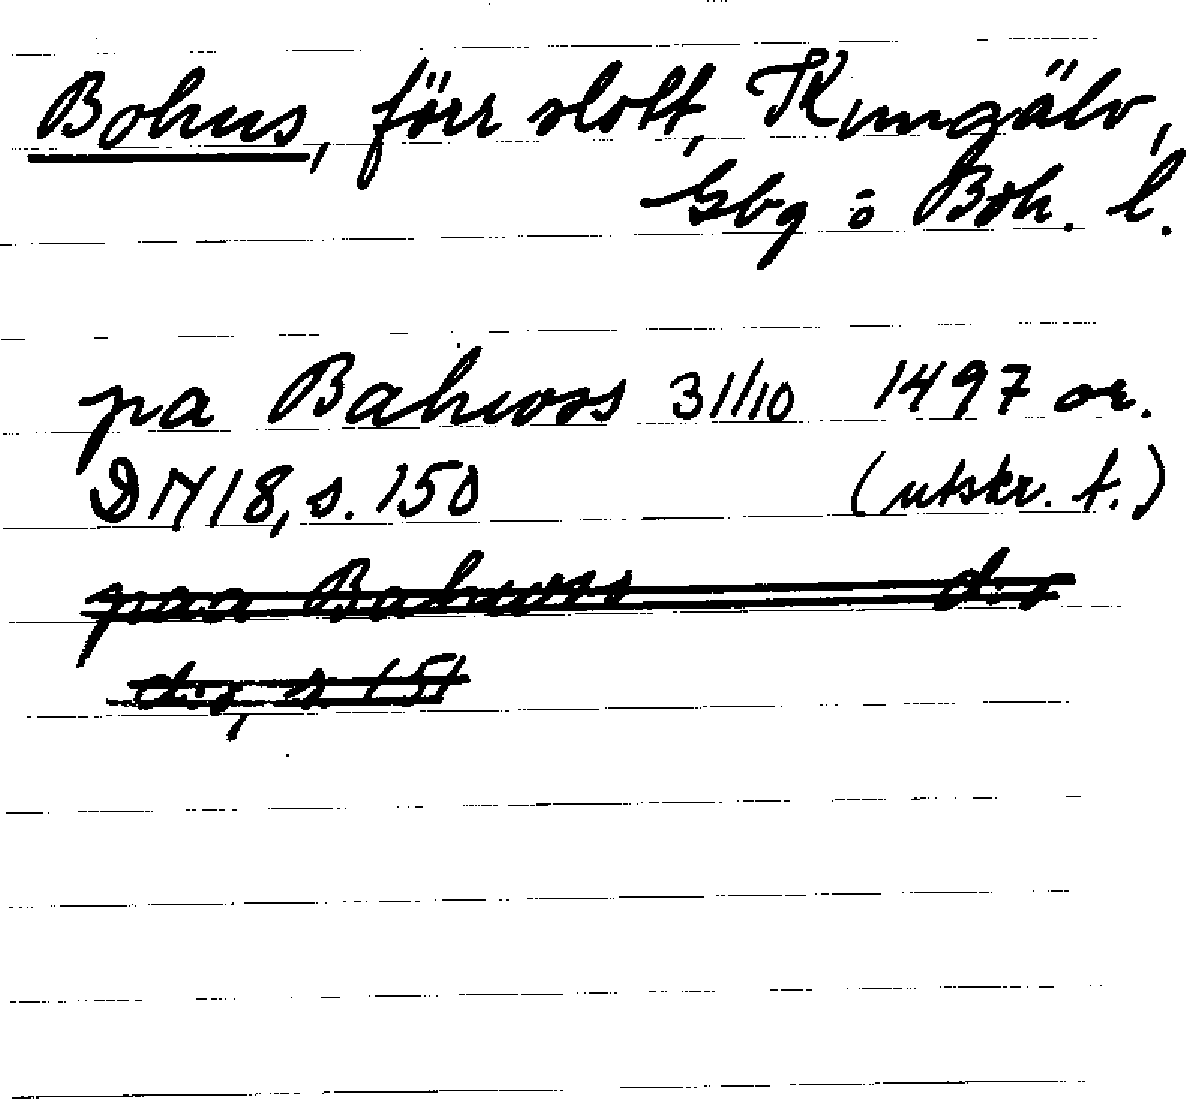 Bohus, förr slott, Kungälv,
Gbg o Boh. l.
pa Bahwss 31/10 1497 or.
DN 18, s. 150 (utskr. f.)
paa Bahwss d:o
d:o, s 151